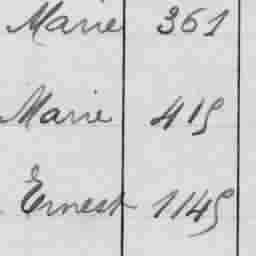 Marie 361
Marie 415
Ernest 1145